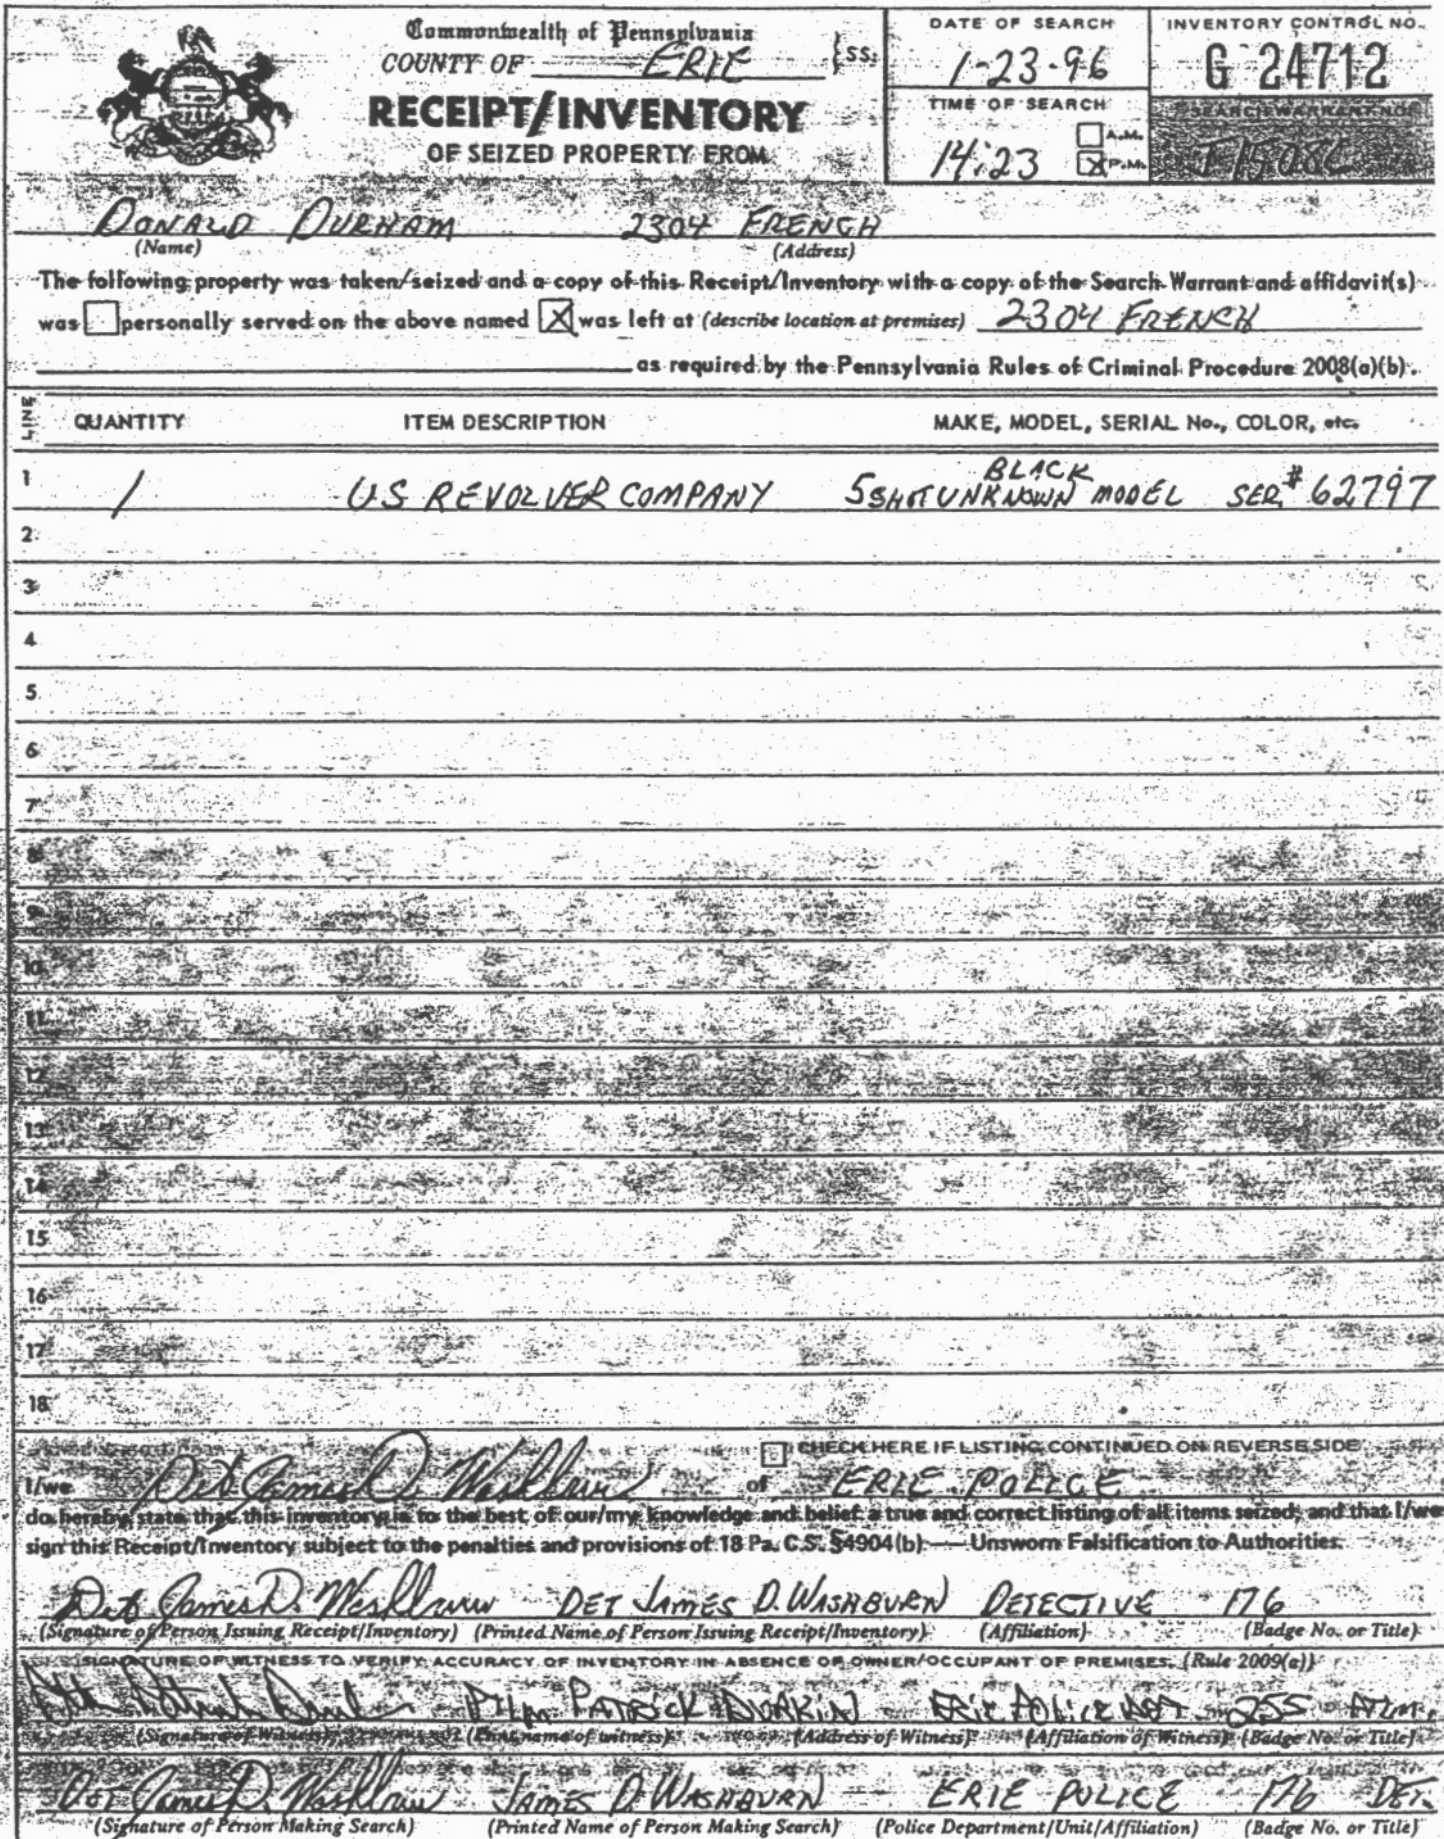 Commonwealth of Pennsylvania
COUNTY OF ERIE }SS:
RECEIPT/INVENTORY
OF SEIZED PROPERTY FROM
DATE OF SEARCH
1-23-96
TIME OF SEARCH
14:23 A.M.
X P.M.
INVENTORY CONTROL NO.
G 24712
SEARCH WARRANT NO.
DONALD DURHAM 2304 FRENCH
(Name) (Address)
The following property was taken/seized and a copy of this Receipt/Inventory with a copy of the Search Warrant and affidavit(s)
was personally served on the above named X was left at (describe location at premises) 2304 FRENCH
as required by the Pennsylvania Rules of Criminal Procedure 2008(a)(b).
LINE QUANTITY ITEM DESCRIPTION MAKE, MODEL, SERIAL No., COLOR, etc.
BLACK
1 1 US REVOLVER COMPANY 5 SHOT UNKNOWN MODEL SER.# 62797
2
3
4
5
6
7
8
9
10
11
12
13
14
15
16
17
18
CHECK HERE IF LISTING CONTINUED ON REVERSE SIDE
I/we Det James D. Washburn of ERIE POLICE
do hereby state that this inventory is to the best of our/my knowledge and belief a true and correct listing of all items seized, and that I/we
sign this Receipt/Inventory subject to the penalties and provisions of 18 Pa. C.S. §4904(b) — Unsworn Falsification to Authorities.
Det James D. Washburn DET JAMES D. WASHBURN DETECTIVE 176
(Signature of Person Issuing Receipt/Inventory) (Printed Name of Person Issuing Receipt/Inventory) (Affiliation) (Badge No. or Title)
SIGNATURE OF WITNESS TO VERIFY ACCURACY OF INVENTORY IN ABSENCE OF OWNER/OCCUPANT OF PREMISES. (Rule 2009(a))
Ptlm. PATRICK DURKIN ERIE POLICE DEPT 255 PTLM.
(Signature of Witness) (Print name of witness) (Address of Witness) (Affiliation of Witness) (Badge No. or Title)
Det James D. Washburn JAMES D WASHBURN ERIE POLICE 176 DET.
(Signature of Person Making Search) (Printed Name of Person Making Search) (Police Department/Unit/Affiliation) (Badge No. or Title)